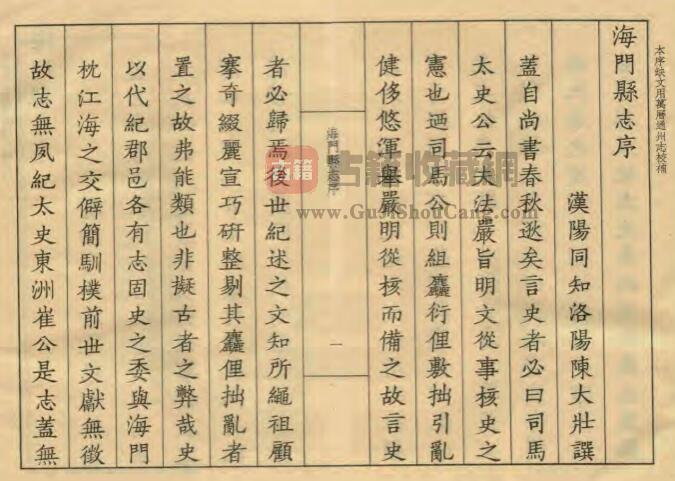 本序缺文用萬曆通州志校補
海門縣志序
漢陽同知洛陽陳大壯譔
蓋自尚書春秋逖矣言史者必曰司馬
太史公云夫法嚴旨明文從事核史之
憲也迺司馬公則組麤衍俚敷拙引亂
健侈悠渾舉嚴明從核而備之故言史
海門縣志序
一
者必歸焉後世紀述之文知所繩祖顧
搴奇綴麗宣巧硏整剔其麤俚拙亂者
置之故弗能類也非擬古者之弊哉史
以代紀郡邑各有志固史之委與海門
枕江海之交僻簡馴樸前世文獻無徵
故志無夙紀太史東洲崔公是志蓋無
古籍
古籍收藏網
www.GujiShouCang.com